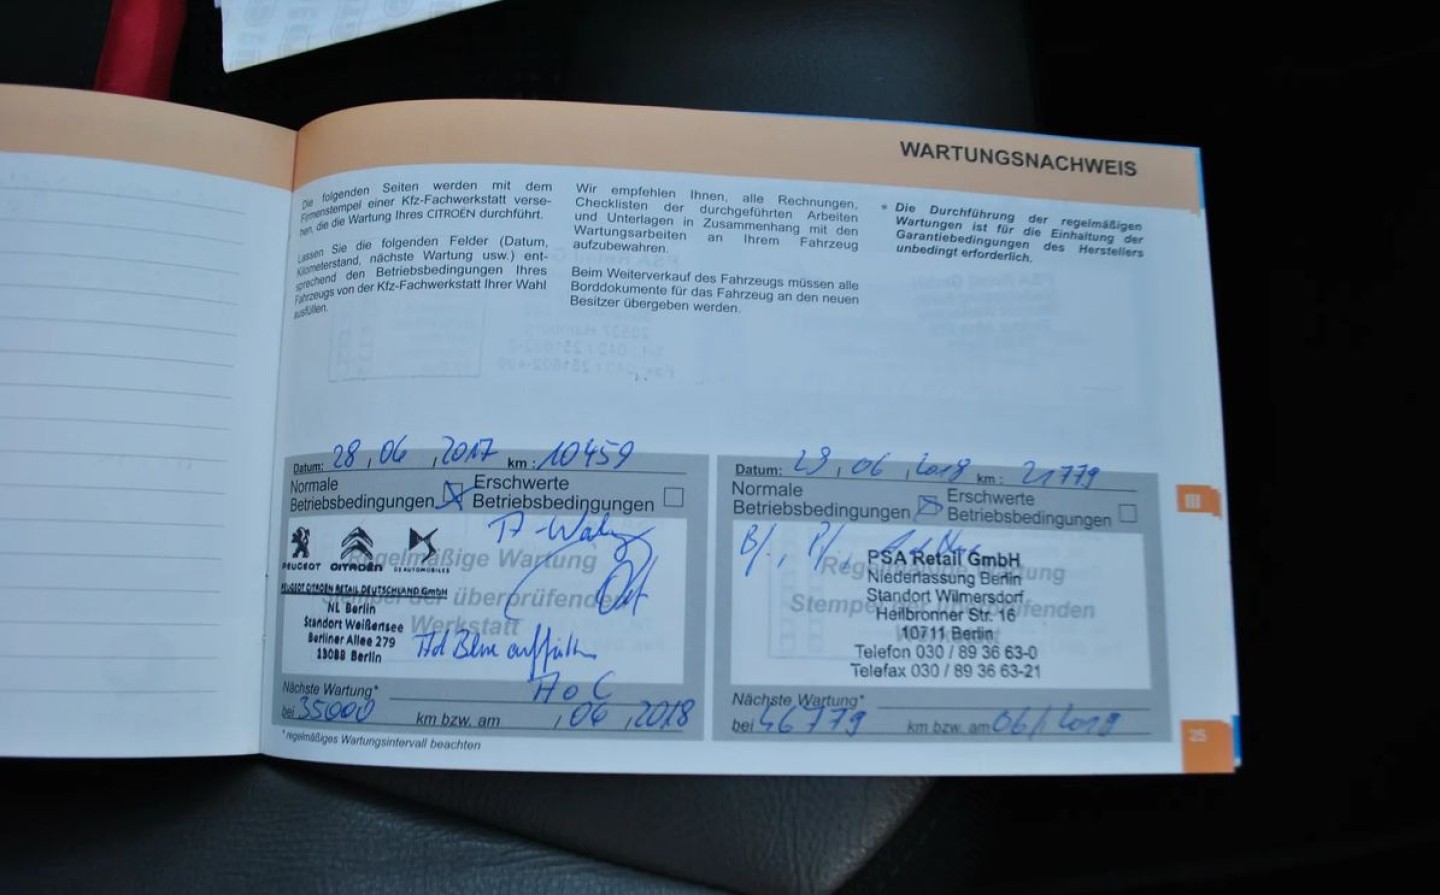 WARTUNGSNACHWEIS
Die folgenden Seiten werden mit dem
Firmenstempel einer Kfz-Fachwerkstatt verse-
hen, die die Wartung Ihres CITROËN durchführt.
Lassen Sie die folgenden Felder (Datum,
Kilometerstand, nächste Wartung usw.) ent-
sprechend den Betriebsbedingungen Ihres
Fahrzeugs von der Kfz-Fachwerkstatt Ihrer Wahl
ausfüllen.
Wir empfehlen Ihnen, alle Rechnungen,
Checklisten der durchgeführten Arbeiten
und Unterlagen in Zusammenhang mit den
Wartungsarbeiten an Ihrem Fahrzeug
aufzubewahren.
Beim Weiterverkauf des Fahrzeugs müssen alle
Borddokumente für das Fahrzeug an den neuen
Besitzer übergeben werden.
* Die Durchführung der regelmäßigen
Wartungen ist für die Einhaltung der
Garantiebedingungen des Herstellers
unbedingt erforderlich.
Datum: 28, 06, 2017 km: 10459
Normale
Betriebsbedingungen
Erschwerte
Betriebsbedingungen
Regelmäßige Wartung
Stempel der überprüfenden
Werkstatt
PEUGEOT CITROËN DS AUTOMOBILES
PEUGEOT CITROËN RETAIL DEUTSCHLAND GmbH
NL Berlin
Standort Weißensee
Berliner Allee 279
13088 Berlin
Ad Blue auffüllen
Nächste Wartung*
bei 35000 km bzw. am , 06, 2018
* regelmäßiges Wartungsintervall beachten
Datum: 29, 06, 2018 km: 21779
Normale
Betriebsbedingungen
Erschwerte
Betriebsbedingungen
Regelmäßige Wartung
Stempel der überprüfenden
PSA Retail GmbH
Niederlassung Berlin
Standort Wilmersdorf
Heilbronner Str. 16
10711 Berlin
Telefon 030 / 89 36 63-0
Telefax 030 / 89 36 63-21
Nächste Wartung*
bei 46779 km bzw. am 06/2019
III
25